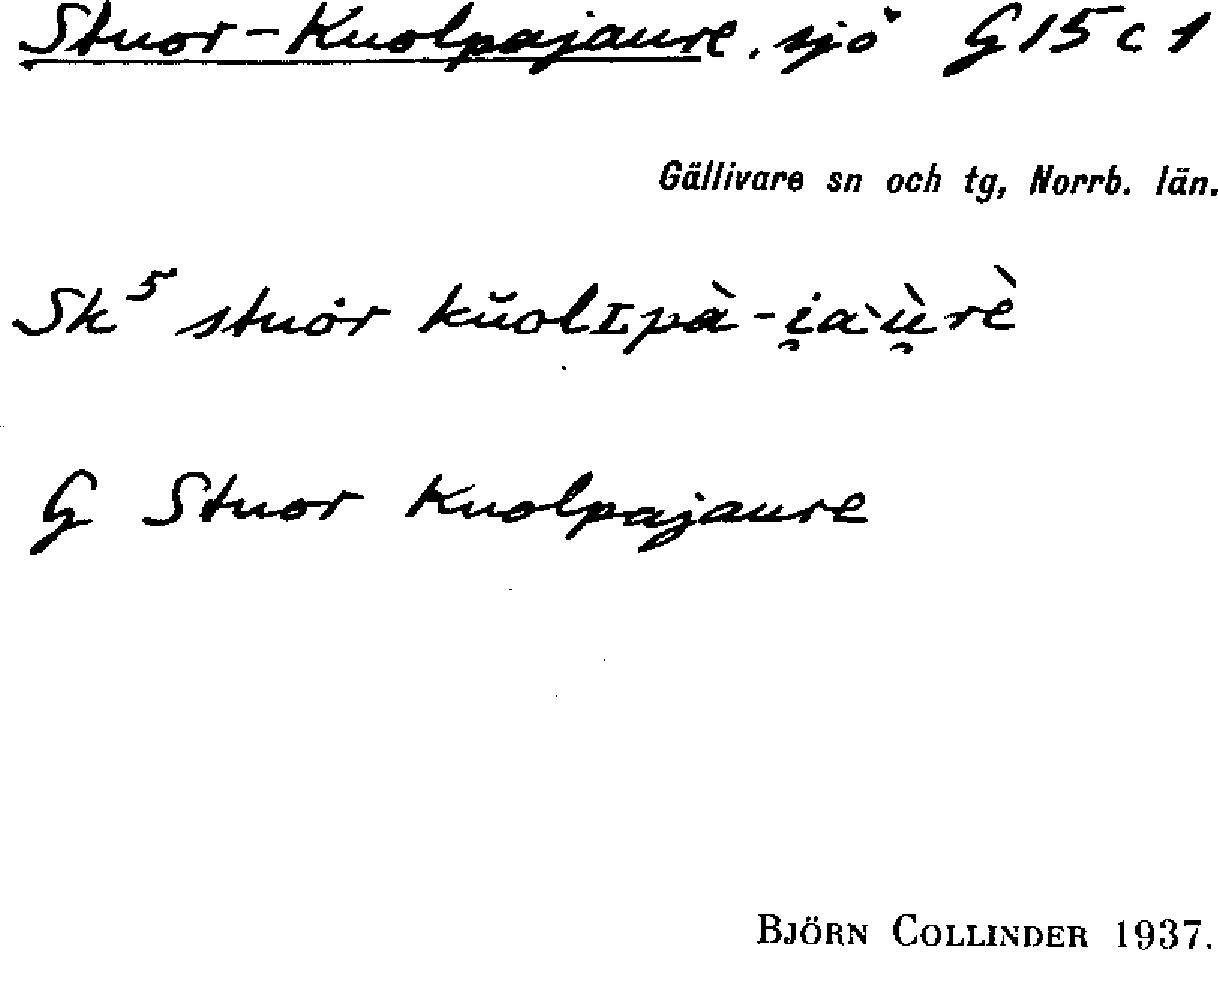 Stuor-Kuolpajaure, sjö G 15 c 1
Gällivare sn och tg, Norrb. län.
Sk⁵ stuȯr kŭolɪpà-i̯aˋù̯rè
G Stuor Kuolpajaure
BJÖRN COLLINDER 1937.